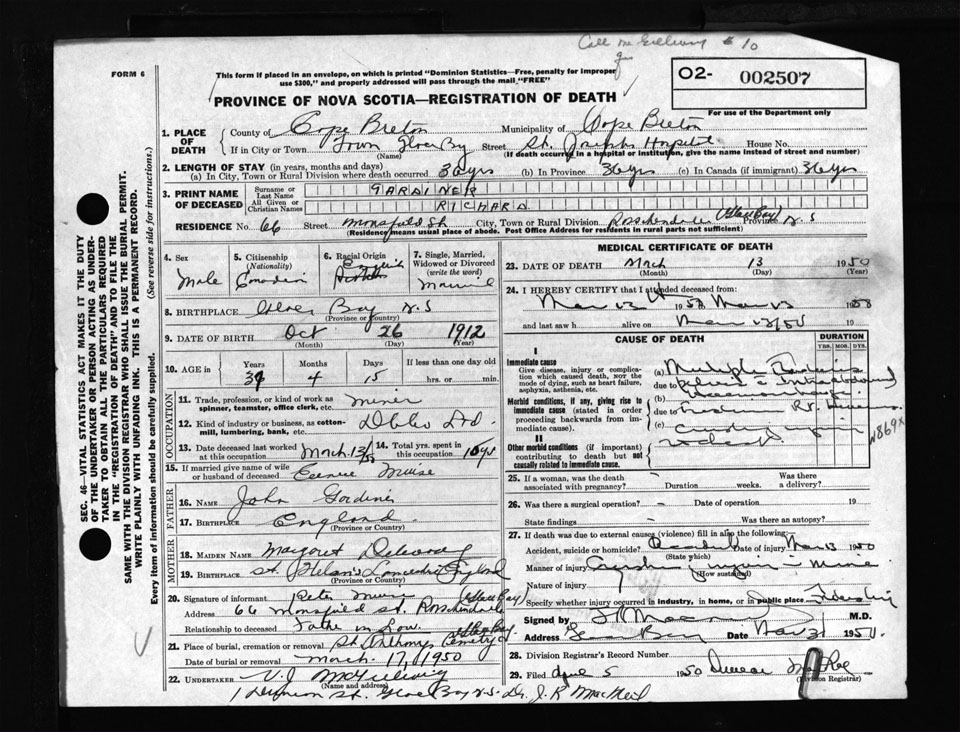 Call McGillivary # 10
FORM 6
This form if placed in an envelope, on which is printed "Dominion Statistics—Free, penalty for improper
use $300," and properly addressed will pass through the mail "FREE"
O2- 002507
For use of the Department only
PROVINCE OF NOVA SCOTIA—REGISTRATION OF DEATH
SEC. 46—VITAL STATISTICS ACT MAKES IT THE DUTY
OF THE UNDERTAKER OR PERSON ACTING AS UNDER-
TAKER TO OBTAIN ALL THE PARTICULARS REQUIRED
IN THE "REGISTRATION OF DEATH" AND TO FILE THE
SAME WITH THE DIVISION REGISTRAR WHO SHALL ISSUE THE BURIAL PERMIT.
WRITE PLAINLY WITH UNFADING INK. THIS IS A PERMANENT RECORD.
(See reverse side for instructions.)
Every item of information should be carefully supplied.
1. PLACE OF DEATH County of Cape Breton Municipality of Cape Breton
If in City or Town Town Glace Bay Street St. Josephs Hospital House No.
(Name) (If death occurred in a hospital or institution, give the name instead of street and number)
2. LENGTH OF STAY (in years, months and days)
(a) In City, Town or Rural Division where death occurred 36 yrs (b) In Province 36 yrs (c) In Canada (if immigrant) 36 yrs
3. PRINT NAME OF DECEASED Surname or Last Name GARDINER
All Given or Christian Names RICHARD
RESIDENCE No. 66 Street Mansfield St City, Town or Rural Division (Glace Bay) Province N.S
(Residence means usual place of abode. Post Office Address for residents in rural parts not sufficient)
4. Sex Male
5. Citizenship (Nationality) Canadian
6. Racial Origin English
7. Single, Married, Widowed or Divorced (write the word) Married
8. BIRTHPLACE Glace Bay N.S
(Province or Country)
9. DATE OF BIRTH Oct 26 1912
(Month) (Day) (Year)
10. AGE in Years Months 4 Days 15 If less than one day old
hrs. or min.
OCCUPATION
11. Trade, profession or kind of work as spinner, teamster, office clerk, etc. miner
12. Kind of industry or business, as cotton-mill, lumbering, bank, etc. Ltd
13. Date deceased last worked at this occupation March 13/50 14. Total yrs. spent in this occupation
15. If married give name of wife or husband of deceased Muise
FATHER
16. Name John Gardiner
17. Birthplace England
(Province or Country)
MOTHER
18. MAIDEN NAME Margaret
19. BIRTHPLACE St. Helan's England
(Province or Country)
20. Signature of informant Peter Muise (Glace Bay)
Address 66 Mansfield St.
Relationship to deceased Father in Law
21. Place of burial, cremation or removal St. Anthonys Cemetry Glace Bay
Date of burial or removal March 17, 1950
22. UNDERTAKER V.J McGillivary
(Name and address)
St. Glace Bay N.S. Dr. J. R MacNeil
MEDICAL CERTIFICATE OF DEATH
23. DATE OF DEATH Mch 13 1950
(Month) (Day) (Year)
24. I HEREBY CERTIFY that I attended deceased from:
Mar 13 1950 Mar 13 1950
and last saw h alive on Mar 13/50 19
CAUSE OF DEATH
DURATION
YRS. MOS. DYS.
I
Immediate cause
Give disease, injury or complication which caused death, not the mode of dying, such as heart failure, asphyxia, asthenia, etc.
(a) Multiple
due to Pelvis c Intraabdominal
(b) Haemorrhage
Morbid conditions, if any, giving rise to immediate cause (stated in order proceeding backwards from immediate cause).
due to
(c) Crushing injury
N869X
II
Other morbid conditions (if important) contributing to death but not causally related to immediate cause.
25. If a woman, was the death associated with pregnancy? – Duration weeks. Was there a delivery?
26. Was there a surgical operation? – Date of operation 19
State findings – Was there an autopsy?
27. If death was due to external causes (violence) fill in also the following:
Accident, suicide or homicide? Accident Date of injury Mar 13 1950
(State which)
Manner of injury injury – Mine
(How sustained)
Nature of injury
Specify whether injury occurred in industry, in home, or in public place Industry
Signed by M.D.
Address Glace Bay Date Mar 31 1950.
28. Division Registrar's Record Number
29. Filed April 5 1950 Duncan MacRae
(Division Registrar)